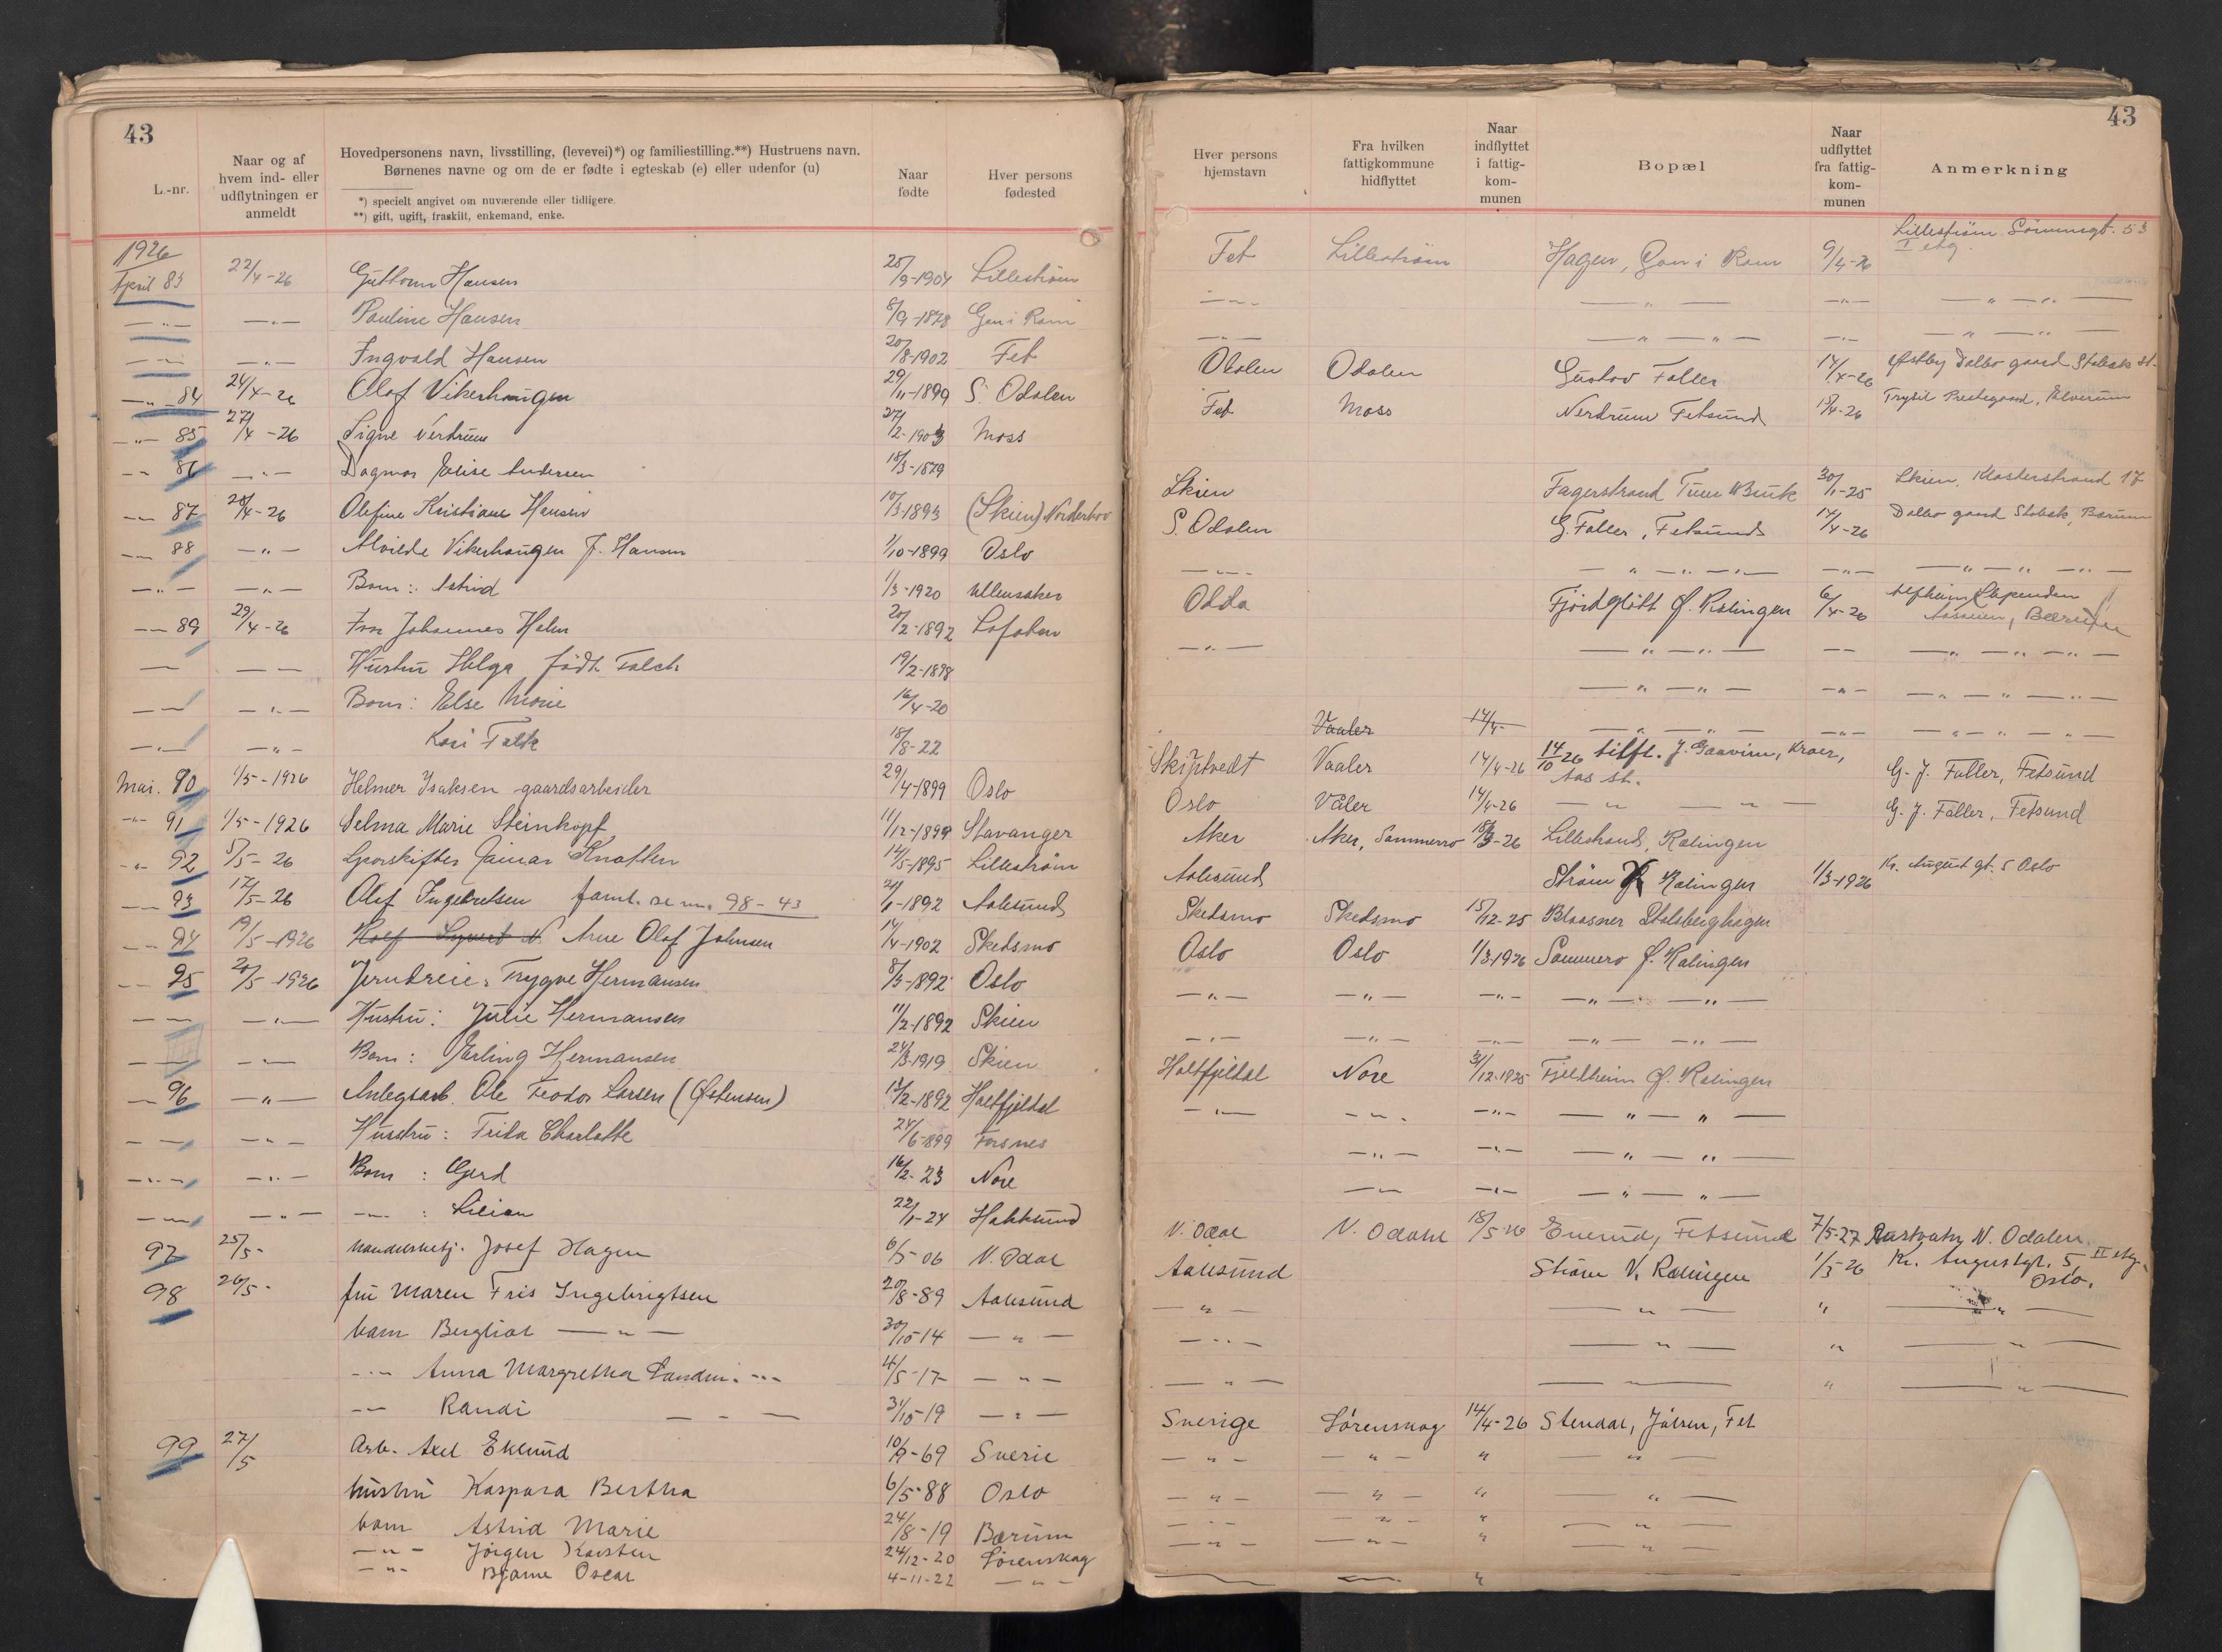 43
L.-nr.
Naar og af hvem ind- eller udflytningen er anmeldt
Hovedpersonens navn, livsstilling, (levevei)*) og familiestilling.**) Hustruens navn.
Børnenes navne og om de er fødte i egteskab (e) eller udenfor (u)
*) specielt angivet om nuværende eller tidligere.
**) gift, ugift, fraskilt, enkemand, enke.
Naar fødte
Hver persons fødested
1926
April 83 22/4-26 Guttorm Hansen 28/9-1904 Lillestrøm
—„— —„— Pauline Hansen 8/9-1878 Gan i Ram
—„— —„— Ingvald Hansen 20/8-1902 Fet
—„— 84 24/4-26 Olaf Vikerhaugen 29/11-1899 S. Odalen
—„— 85 27/4-26 Signe Nerdrum 27/2-1903 Moss
—„— 86 —„— Dagmar Elise Andersen 18/3-1879
—„— 87 28/4-26 Olefine Kristiane Hansen 10/3-1893 (Skien) Norderhov
—„— 88 —„— Alvilde Vikerhaugen f. Hansen 1/10-1899 Oslo
—„— —„— Barn: Astrid 1/3-1920 Ullensaker
—„— 89 29/4-26 Johannes Holm 20/2-1892 Lofoten
—„— —„— Hustru Helga født Falch 19/2-1898
—„— —„— Barn: Else Marie 16/4-20
—„— —„— Kari Falk 18/8-22
Mai. 90 1/5-1926 Helmer Isaksen gaardsarbeider 29/4-1899 Oslo
—„— 91 1/5-1926 Selma Marie Steinkopf 11/12-1899 Stavanger
—„— 92 5/5-26 Sporskifter Einar Knatten 14/5-1895 Lillestrøm
—„— 93 12/5-26 Olaf Ingebretsen faml. se nr. 98-43 21/1-1892 Aalesund
—„— 94 19/5-1926 Arne Olaf Johnsen 14/4-1902 Skedsmo
—„— 95 20/5-1926 Jerndreier Trygve Hermansen 8/3-1892 Oslo
—„— —„— Hustru: Julie Hermansen 11/2-1892 Skien
—„— —„— Barn: Erling Hermansen 24/3-1919 Skien
—„— 96 —„— Anlegsarb. Ole Teodor Larsen (Østensen) 12/2-1892 Holtfjeldal
—„— —„— Hustru: Frida Charlotte 24/6-1899 Forsnes
—„— —„— Barn: Gerd 16/2-23 Nore
—„— —„— —„— : Lilian 22/1-24 Hokksund
97 25/5- handelsbetj. Josef Hagen 6/5-06 N. Odal
98 26/5- fru Maren Fris Ingebrigtsen 20/8-89 Aalesund
barn Bergliot —„— 30/10-14 —„—
—„— Anna Margretha Sandm. —„— 4/5-17 —„—
—„— Randi —„— 31/10-19 —„—
99 27/5 Arb. Axel Eklund 10/9-69 Sverie
hustru Kaspara Bertha 6/5-88 Oslo
barn Astrid Marie 24/8-19 Bærum
—„— Jørgen Karsten 24/12-20 Lørenskog
—„— Bjarne Oscar 4-11-22 —„—
43
Hver persons hjemstavn
Fra hvilken fattigkommune hidflyttet
Naar indflyttet i fattig-kom-munen
Bopæl
Naar udflyttet fra fattig-kom-munen
Anmerkning
Fet Lillestrøm Hagen, Gan i Ram 9/4-26 Lillestrøm Sørumgt. 53 I etg.
—„— —„— —„— —„— —„—
—„— —„— —„— —„— —„—
Odalen Odalen Gustav Faller 14/4-26 Østby Dalbo gaard Stabæk st.
Fet Moss Nerdrum Fetsund 15/4-26 Trysil Prestegaard, Elverum
Skien Fagerstrand 30/1-25 Skien, Klosterstrand 17
S. Odalen G. Faller, Fetsund 14/4-26 Dalbo gaard Stabæk, Bærum
—„— —„— —„— —„—
Odda Fjordgløtt Ø. Rælingen 6/4-26 Slependen Bærum
—„— —„— —„— —„—
—„— —„— —„—
Vaaler 14/4- —„— —„— —„—
Skiptvedt Vaaler 14/4-26 14/10 26 tilfl. J. Gaavim, Kroer, Aas st. G. J. Faller, Fetsund
Oslo Våler 14/4-26 —„— —„— G. J. Faller, Fetsund
Aker Aker, Sommerro 18/3-26 Lillestrand, Rælingen
Aalesund Strøm Rælingen 1/3-1926 Kr. August gt. 5 Oslo
Skedsmo Skedsmo 15/12-25 Blaasner Stalsberghagen
Oslo Oslo 1/3-1926 Sommero Ø. Rælingen
—„— —„— —„— —„— —„—
—„— —„— —„— —„— —„—
Holtfjeldal Nore 31/12-1925 Fjeldheim Ø. Rælingen
—„— —„— —„— —„— —„—
—„— —„— —„— —„—
—„— —„— —„— —„—
N. Odal N. Odalen 18/5-26 Enerud, Fetsund 7/5-27 N. Odalen
Aalesund Strøm V. Rælingen 1/3-26 Kr. Augustgt. 5 II etg. Oslo.
—„— —„— „ —„—
—„— —„— „ —„—
—„— —„— „ —„—
Sverige Lørenskog 14/4-26 Stendal, Jålsen, Fet
—„— —„— „ —„—
—„— —„— „ —„—
—„— —„— „ —„—
—„— —„— „ —„—